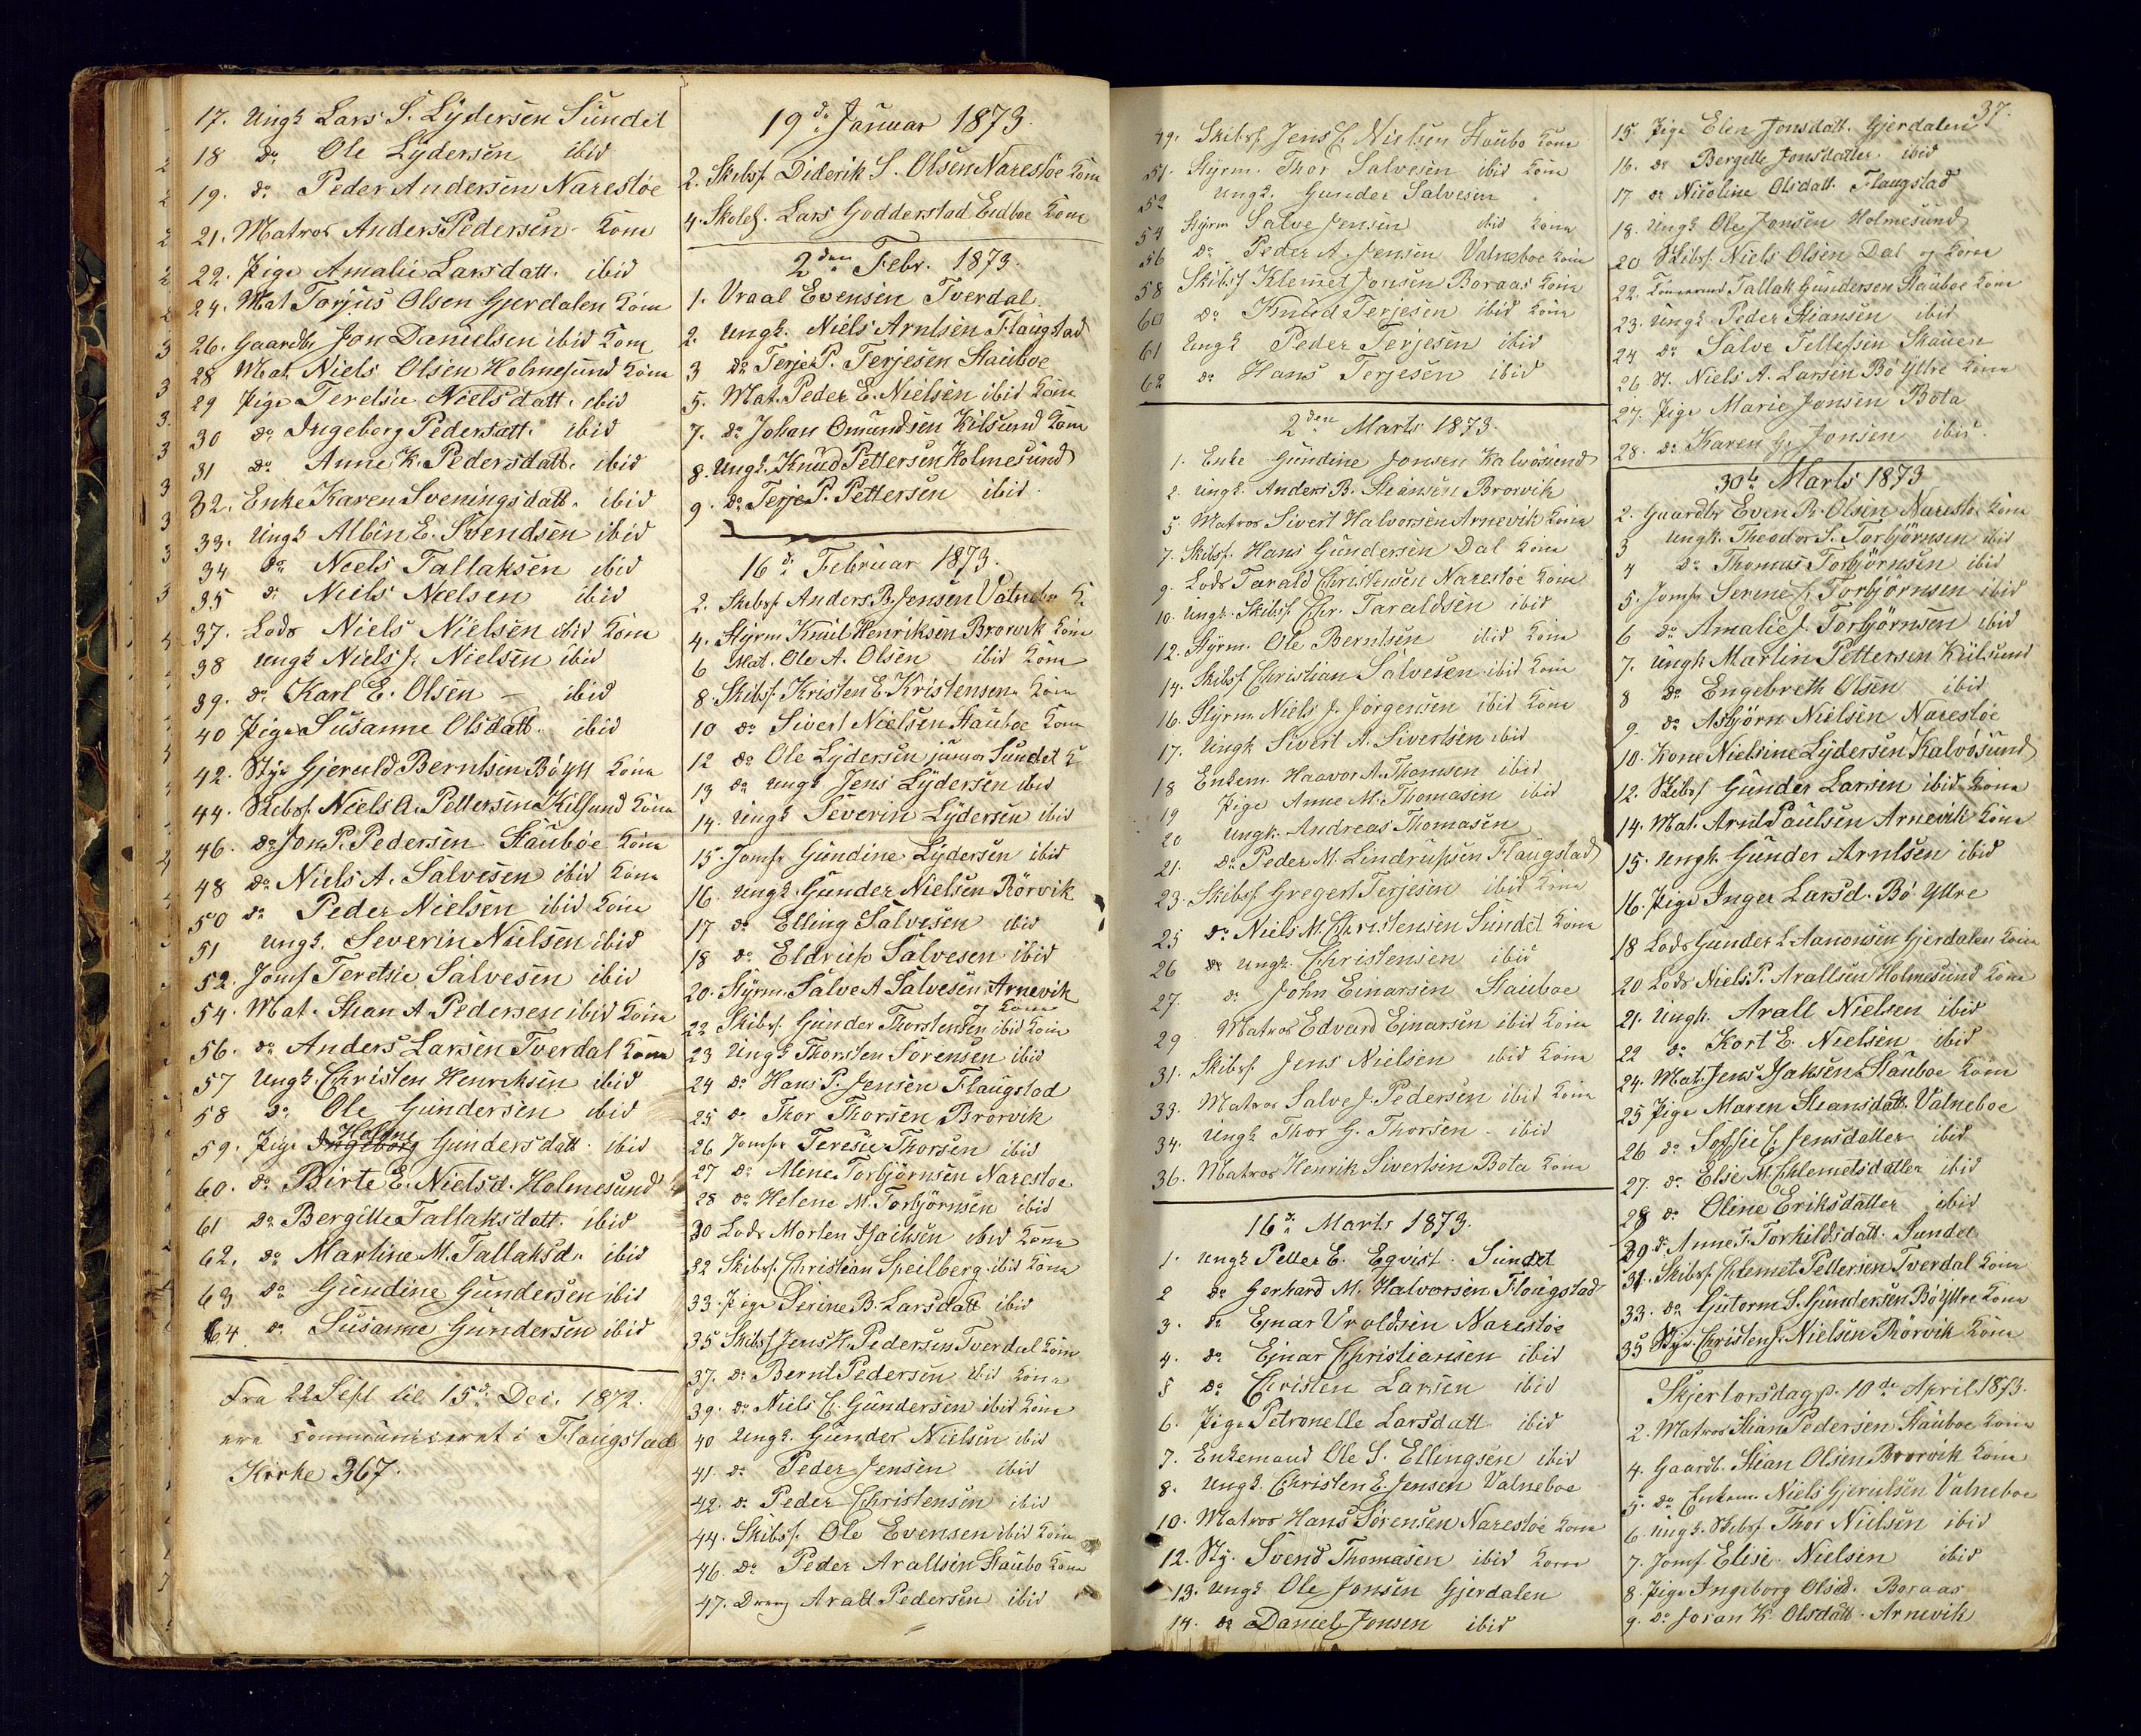 17. Ungk Lars S. Lydersen Sundet
18 do Ole Lydersen ibid
19. do Peder Andersen Narestøe
21. Matros Anders Pedersen - Kone
22. Pige Amalie Larsdatt. ibid
24. Mat Torjus Olsen Gjerdalen Kone
26. Gaardbr Jon Danielsen ibid Kone
28 Mat. Niels Olsen Holmesund Kone
29 Pige Terelsie Nielsdatt. ibid
30 do Ingeborg Pedersdatt. ibid
31 do Anne K. Pedersdatt. ibid
32. Enke Karen Sveningsdatt. ibid
33. Ungk Albin E. Svendsen ibid
34 do Neels Tallaksen ibid
35 do Neils Neelsen ibid
37. Lods Niels Nielsen ibid Kone
38 Ungk Niels J. Nielsen ibid
39. do Karl E. Olsen - ibid
40 Pige Susanne Olsdatt. ibid
42. Styr Gjeruld Berntsen Bö Kone
44. Skibsf. Niels A. Pettersen Kilsund Kone
46. do Jon P. Pedersen Stauboe Kone
48 do Niels A. Salvesen ibid Kone
50 do Peder Nielsen ibid Kone
51 Ungk. Severin Nielsen ibid
52. Jomf Teretsie Salvesen ibid
54. Mat. Stian A. Pedersen ibid Kone
56. do Anders Larsen Tverdal Kone
57 Ungk. Christen Henriksen ibid
58 do Ole Gundersen ibid
59. Pige Helene Gundersdatt. ibid
60. do Birte E. Nielsd. Holmesund
61 do Bergitte Tallaksdatt. ibid
62. do Martine M. Tallaksd. ibid
63 do Gundine Gundersen ibid
64. do Susanne Gundersen ibid
Fra 22 Sept til 15d. Dec. 1872.
ere communiceret i Flaugstad
Kirke 367.
19d. Januar 1873.
2. Skibsf. Diderik S. Olsen Narestøe Kone
4. Skolel. Lars Godderstad Eidboe Kone
2den Febr. 1873.
1. Vraal Evensen Tverdal.
2. Ungk. Niels Arntsen Flaugstad
3 do Terje P. Terjesen Stauboe
5. Mat. Peder E. Nielsen ibid Kone
7. do Johan Omundsen Kilsund Kone
8. Ungk. Knud Pettersen Holmesund
9. do Terje P. Pettersen ibid.
16d. Februar 1873.
2. Skibsf. Anders B. Jensen Vatneboe K.
4. Styrm Knut Henriksen Brorvik Kone
6 Mat. Ole A. Olsen - ibid Kone
8. Skibsf. Kristen E. Kristensen Kone
10 do Sivert Nielsen Stauboe Kone
12 do Ole Lydersen junior Sundet K
13 do Ungk Jens Lydersen ibid
14. Ungk Severin Lydersen ibid
15. Jomfr Gundine Lydersen ibid
16. Ungk Gunder Nielsen Rörvik
17 do Elling Salvesen ibid
18 do Eldrup Salvesen ibid
20. Styrm Salve A Salvesen Arnevik
og Kone
22 Skibsf. Gunder Thorstensen ibid Kone
23 Ungk Thorsten Sörensen ibid
24 do Hans P. Jensen Flaugstad
25 do Thor Thorsen Brorvik
26 Jomfr Teresie Thorsen ibid
27 do Alene Torbjörnsen Narestoe
28 do Helene M. Torbjörnsen ibid
30 Lods Morten Isaksen ibid Kone
32 Skibsf. Christian Speilberg ibid Kone
33. Pige Serine B. Larsdatt ibid
35 Skibsf Jens H. Pedersen Tverdal Kone
37. do Bernt Pedersen ibid Kone
39. do Niels C. Gundersen ibid Kone
40 Ungk. Gunder Nielsen ibid
41. do Peder Jensen ibid
42. do Peder Christensen ibid
44. Skibsf. Ole Evensen ibid Kone
46. do Peder Arallsen Staubo Kone
47. Dreng Aralt Pedersen ibid
49. Skibsf. Jens C. Nielsen Staubo Kone
51. Styrm. Thor Salvesen ibid Kone
52 Ungk. Gunder Salvesen
54 Styrm Salve Jensen ibid Kone
56 do Peder A. Jensen Vatneboe Kone
58 Skibsf Klemet Jonsen Boraas Kone
60 do Knud Terjesen ibid Kone
61 Ungk Peder Terjesen ibid
62 do Hans Terjesen ibid
2den Marts 1873.
1. Enke Gundine Jonsen Kalvösund
2. Ungk. Anders B. Stiansen Brorvik
5. Matros Sivert Halvorsen Arnevik Kone
7. Skibsf. Hans Gundersen Dal Kone
9. Lods Tarald Christensen Narestöe Kone
10. Ungk. Skibsf. Chr. Taraldsen ibid
12. Styrm. Ole Berntsen ibid Kone
14. Skibsf Christian Salvesen ibid Kone
16. Styrm Niels J. Jörgensen ibid Kone
17. Ungk Sivert A. Sivertsen ibid
18 Enkem. Haavor A. Thomsen ibid
19 Pige Anne M. Thomasen ibid
20 Ungk. Andreas Thomasen
21. do Peder M. Lindrupsen Flaugstad
23. Skibsf. Gregert Terjesen ibid Kone
25 do Niels M. Christensen Sundet Kone
26 do Ungk. Christensen ibid
27. do John Einarsen Stauboe
29 Matros Edvard Einarsen ibid Kone
31. Skibsf. Jens Nielsen ibid Kone
33. Matros Salve J. Pedersen ibid Kone
34. Ungk Thor G. Thorsen - ibid
36. Matros Henrik Sivertsen Bota Kone
16d. Marts 1873.
1. Ungk Petter E. Eqvist. Sundet
2 do Gerhard M. Halvorsen Flaugstad
3. do Ejnar Vraldsen Narestöe
4. do Ejnar Christiansen ibid
5 do Christen Larsen ibid
6. Pige Petronelle Larsdatt ibid
7. Enkemand Ole S. Ellingsen ibid
8. Ungk. Christen E. Jensen Vatneboe
10. Matros Hans Sörensen Narestöe Kone
12. Sty. Svend Thomasen ibid Kone
13. Ungk Ole Jonsen Gjerdalen
14. do Daniel Jonsen ibid
37.
15. Pige Elen Jonsdatt. Gjerdalen
16. do Bergette Jonsdatter ibid
17. do Nicoline Olsdatt. Flaugstad
18. Ungk Ole Jonsen Holmesund
20 Skibsf. Niels Olsen Dal og Kone
22. Tallak Gundersen Stauboe Kone
23. Ungk Peder Stiansen ibid
24 do Salve Tellefsen Skauen
26 St. Niels A. Larsen Bö Yttre Kone
27. Pige Marie Jonsen Bota
28. do Karen G. Jonsen ibid.
30te Marts 1873
2. Gaardbr Even R. Olsen Narestöe Kone
3 Ungk. Theodor S. Torbjörnsen ibid
4 do Thomas Torbjörnsen ibid
5. Jomfr Serine J. Torbjörnsen ibid
6 do Amalie J. Torbjörnsen ibid
7. Ungk Martin Pettersen Kilsund
8 do Engebreth Olsen ibid
9. do Asbjörn Nielsen Narestöe
10. Kone Nielsine Lydersen Kalvösund
12. Skibsf Gunder Larsen ibid Kone
14. Mat. Arnt Paulsen Arnevik Kone
15. Ungk. Gunder Arntsen ibid
16. Pige Inger Larsd. Bö Yttre
18 Lods Gunder L. Aanonsen Gjerdalen Kone
20 Lods Niels P. Arallsen Holmesund Kone
21. Ungk. Arall Nielsen ibid
22 do Kort E. Nielsen ibid
24. Mat. Jens Isaksen Stauboe Kone
25 Pige Maren Stiansdatt. Vatneboe
26 do Soffie C. Jensdatter ibid
27. do Else M. Chlemetsdatter ibid
28 do Oline Eriksdatter ibid
29. do Anne T. Torkildsdatt. Sundet
31. Skibsf. Chlemet Pettersen Tverdal Kone
33. do Gutorm S. Gundersen Bö Yttre Kone
35 Styr Christen J. Nielsen Rörvik Kone
Skjertorsdag p. 10de April 1873.
2. Matros Stian Pedersen Stauboe Kone
4. Gaardb. Stian Olsen Brorvik Kone
5. do Enkem. Niels Gjerulsen Vatneboe
6. Ungk. Skibsf. Thor Nielsen ibid
7. Jomf Elise Nielsen ibid
8. Pige Ingeborg Olsd. Boraas
9. do Joran K. Olsdatt. Arnevik